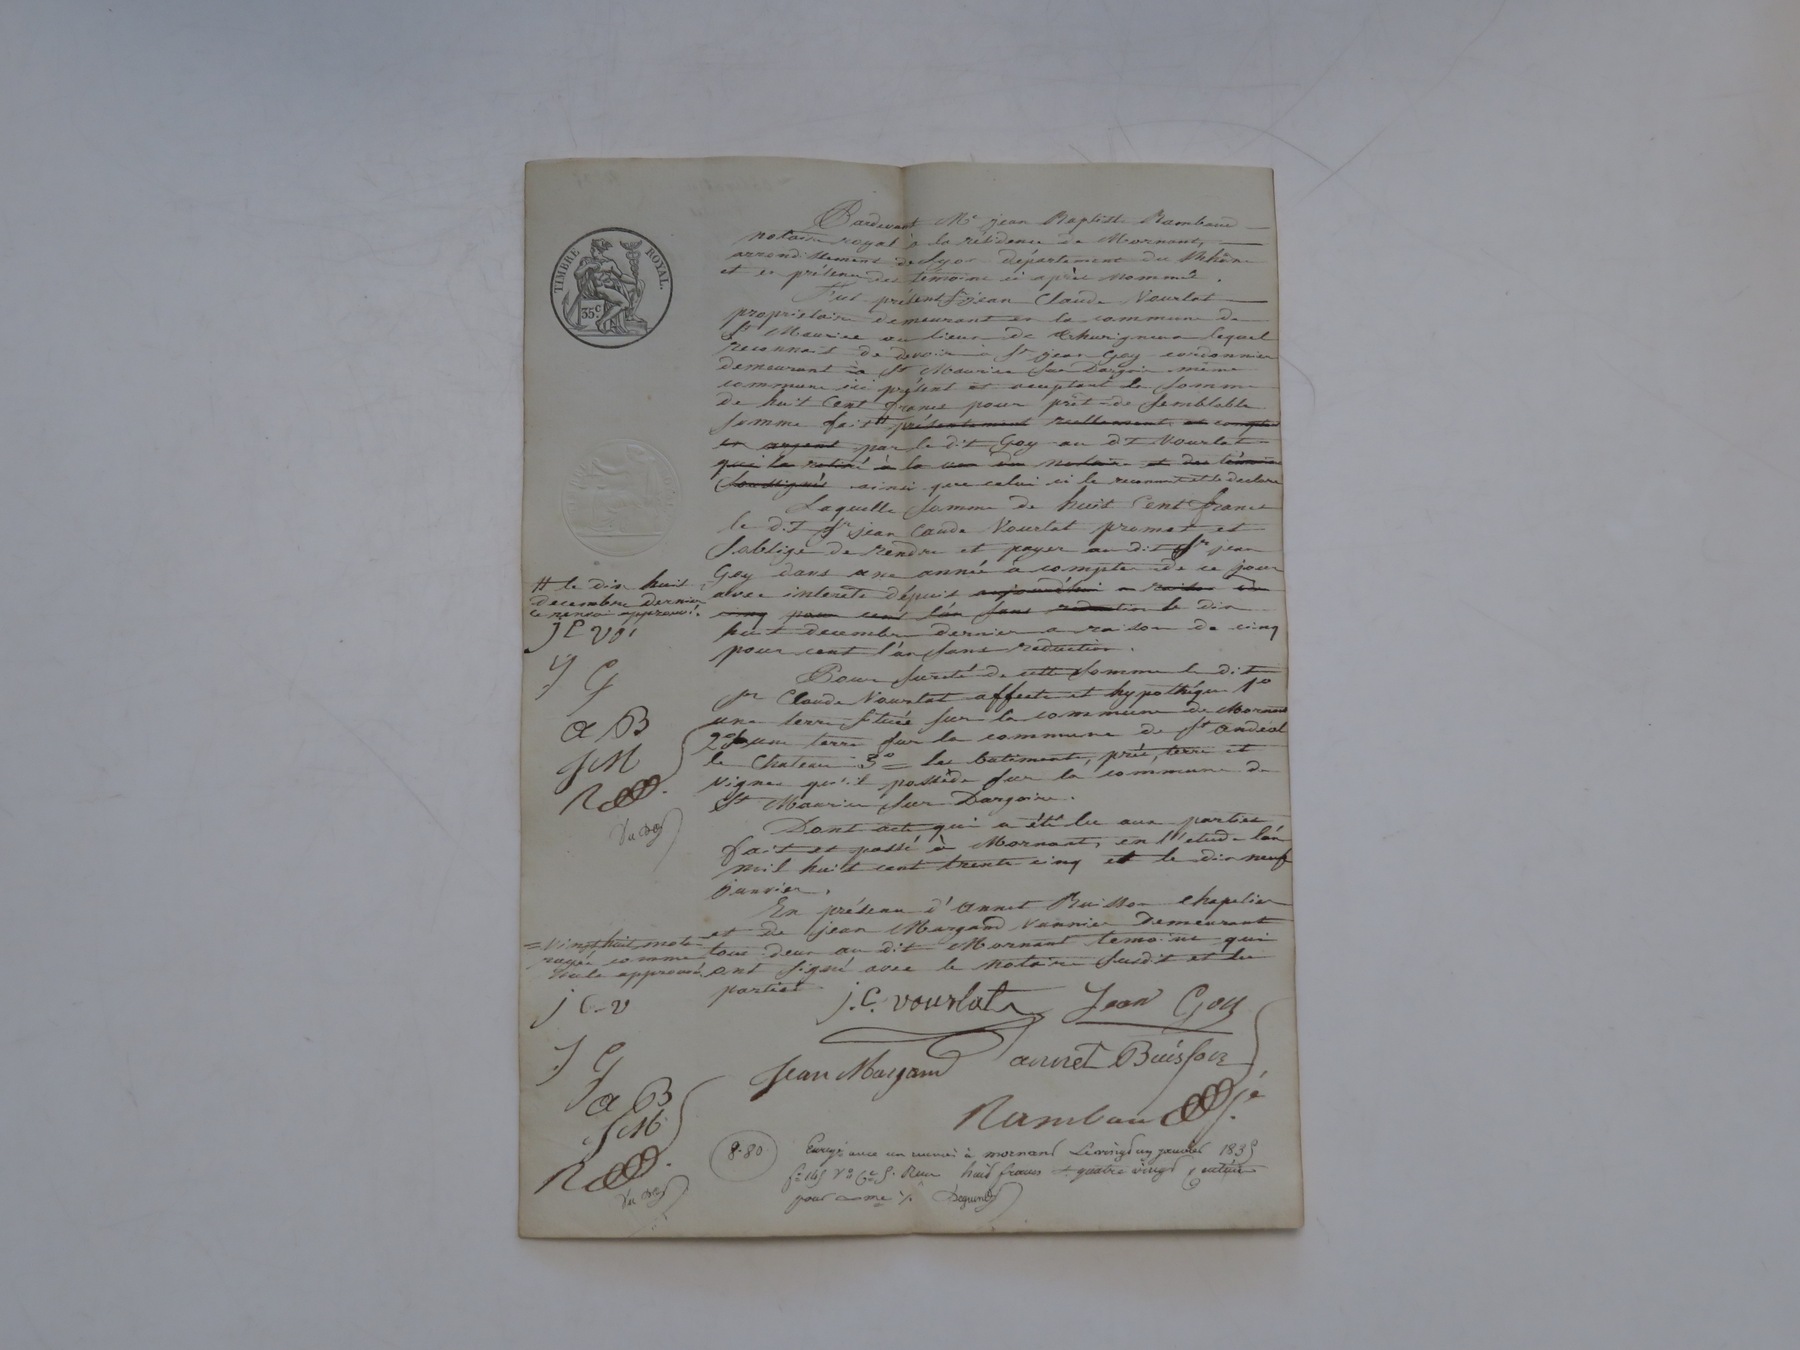 TIMBRE ROYAL.
35 c
Pardevant Me jean Baptiste Rambaud
notaire royal à la résidence de Mornant,
arrondissement de Lyon département du Rhône
et en présence des témoins ci après nommés.
Fut présent Sr jean Claude Vourlat
propriétaire demeurant en la commune de
St Maurice au lieu de lequel
reconnait de devoir à Sr jean Goy cordonnier
demeurant à St Maurice sur Dargoire même
commune ici présent et acceptant la somme
de huit Cent francs pour prêt de semblable
somme fait # présentement reellement et compté
en argent par le dit Goy au dt Vourlat
qui la retiré à la vue du notaire et des témoins
soussignés ainsi que celui ci le reconnait et le déclare
Laquelle somme de huit Cent francs
le dit Sr jean Claude Vourlat promet et
s'oblige de rendre et payer au dit Sr jean
Goy dans une année à compter de ce jour
avec intérêts dépuis aujourd'hui a raison du
cinq pour cent l'an sans reduction le dix
huit decembre dernier a raison de cinq
pour cent l'an sans reduction.
# le dix huit
decembre dernier
ce renvoi approuvé.
J C V
J G
a B
J M
R
Pour sureté de cette somme le dit
Sr Claude Vourlat affecte et hypothéque 1o
une terre située sur la commune de Mornant
2o une terre sur la commune de St andéol
le Chateau 3o = les batiments, prés, terre et
vignes qu'il possède sur la commune de
St Maurice sur Dargoire.
Dont acte qui a été lu aux parties
fait et passé à Mornant, en l'etude l'an
mil huit cent trente cinq et le dix neuf
janvier.
En présence d'annet Buisson chapelier
et de jean Margand vannier demeurant
tous deux au dit Mornant temoins qui
ont signé avec le notaire susdit et les
parties
= Vingt huit mots
rayés comme
nuls approuvé
j C V
J G
a B
J M
R
j. C. vourlat Jean Goy
Jean Margand annet Buisson
Rambaud
8-80
Enregistré à mornant Le vingt un janvier 1835
huit francs quatre vingt centimes
pour